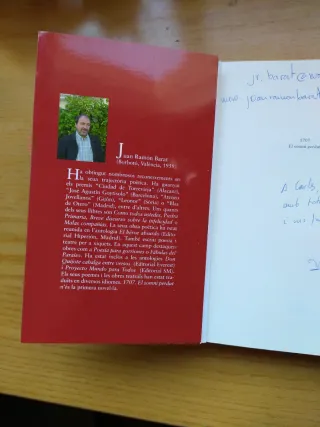 Juan Ramón Barat
(Borbotó, València, 1959)
Ha obtingut nombrosos reconeixements en
la seua trajectòria poètica. Ha guanyat
els premis "Ciudad de Torrevieja" (Alacant),
"José Agustín Goytisolo" (Barcelona), "Antonio
Jovellanos" (Gijón), "Leonor" (Sòria) o "Blas
de Otero" (Madrid), entre d'altres. Des
dels seus llibres són Como todos ustedes, Piedra
Primaria, Breve discurso sobre la infelicidad o
Malas compañías. La seua obra poètica ha estat
reunida en l'antologia El héroe absurdo (Edito-
rial Hiperión, Madrid). També escriu poesia i
teatre per a xiquets. En aquest camp destaquen
obres com a Poesía para gorriones o Fábulas del
Paraíso. Ha estat inclòs a les antologies Don
Quijote cabalga entre versos (Editorial Everest)
i Proyecto Mundo para Todos (Editorial SM).
Els seus poemes i les obres teatrals han estat tra-
duïts en diversos idiomes. 1707. El somni perdut
n'és la primera novel·la.
jr.barat@
1707
El somni perdut
A Carles,
amb tot
i un